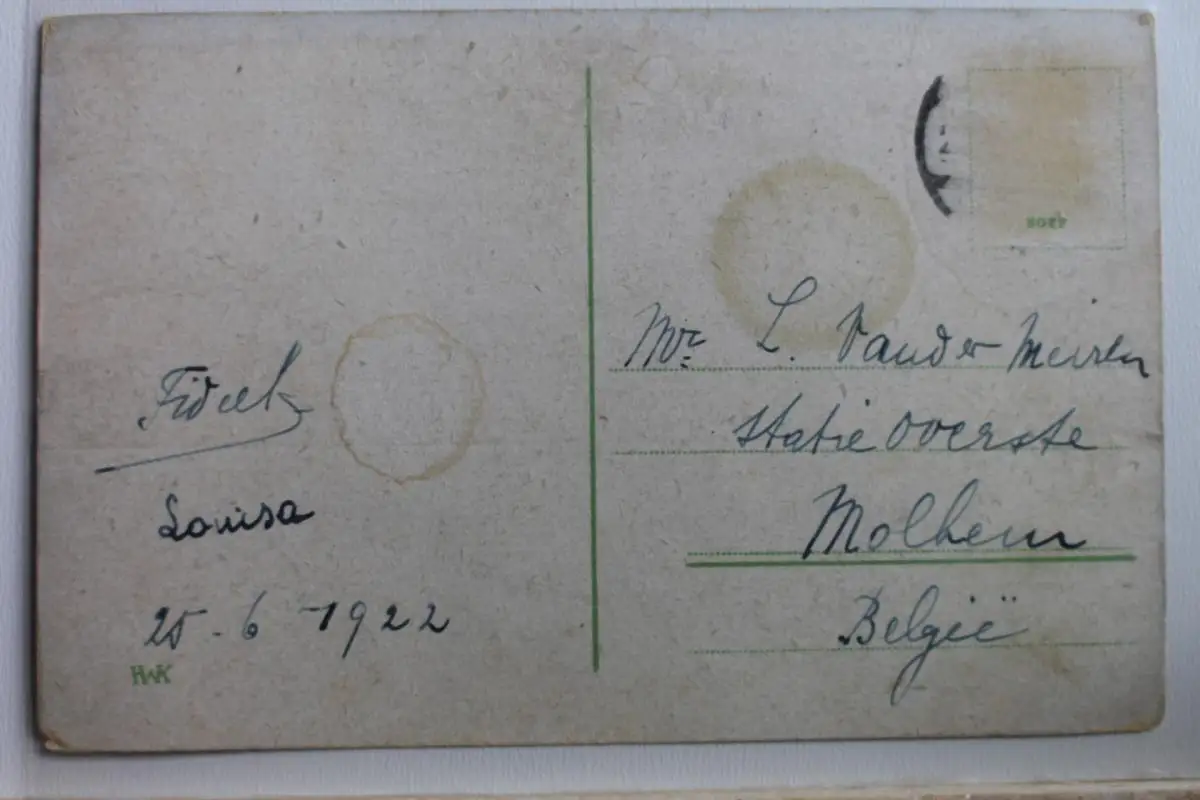 Fideel
Louisa
25-6-1922
HWK
Mr. L. Vander Meiren
Statie overste
Molhem
België